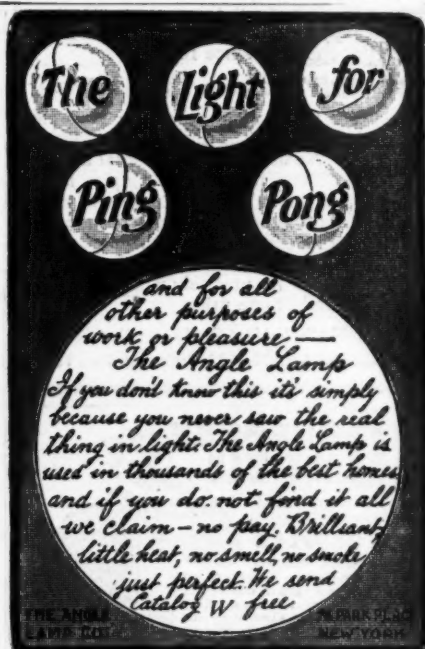 The Light for
Ping Pong
and for all
other purposes of
work or pleasure —
The Angle Lamp
If you don't know this it's simply
because you never saw the real
thing in light. The Angle Lamp is
used in thousands of the best homes
and if you do not find it all
we claim – no pay. Brilliant,
little heat, no smell, no smoke
just perfect. We send
Catalog W free
THE ANGLE
LAMP CO.
PARK PLACE
NEW YORK